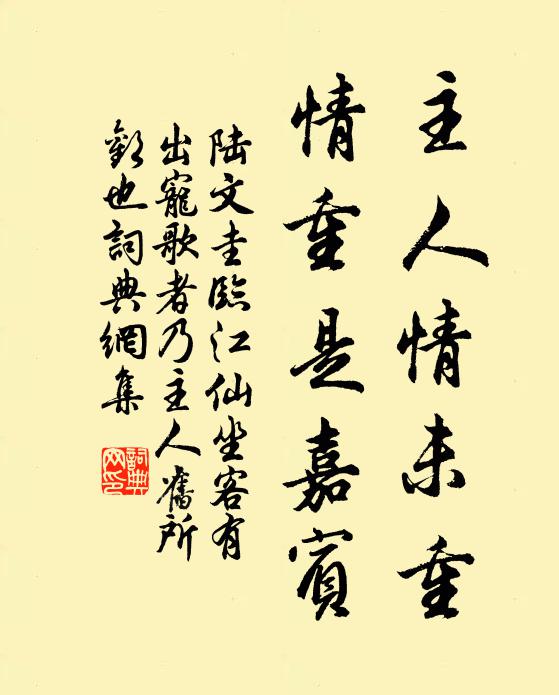 主人情未重
情重是嘉賓
陸文圭臨江仙坐客有
出寵歌者乃主人舊所
歡也詞典網集
詞典
网